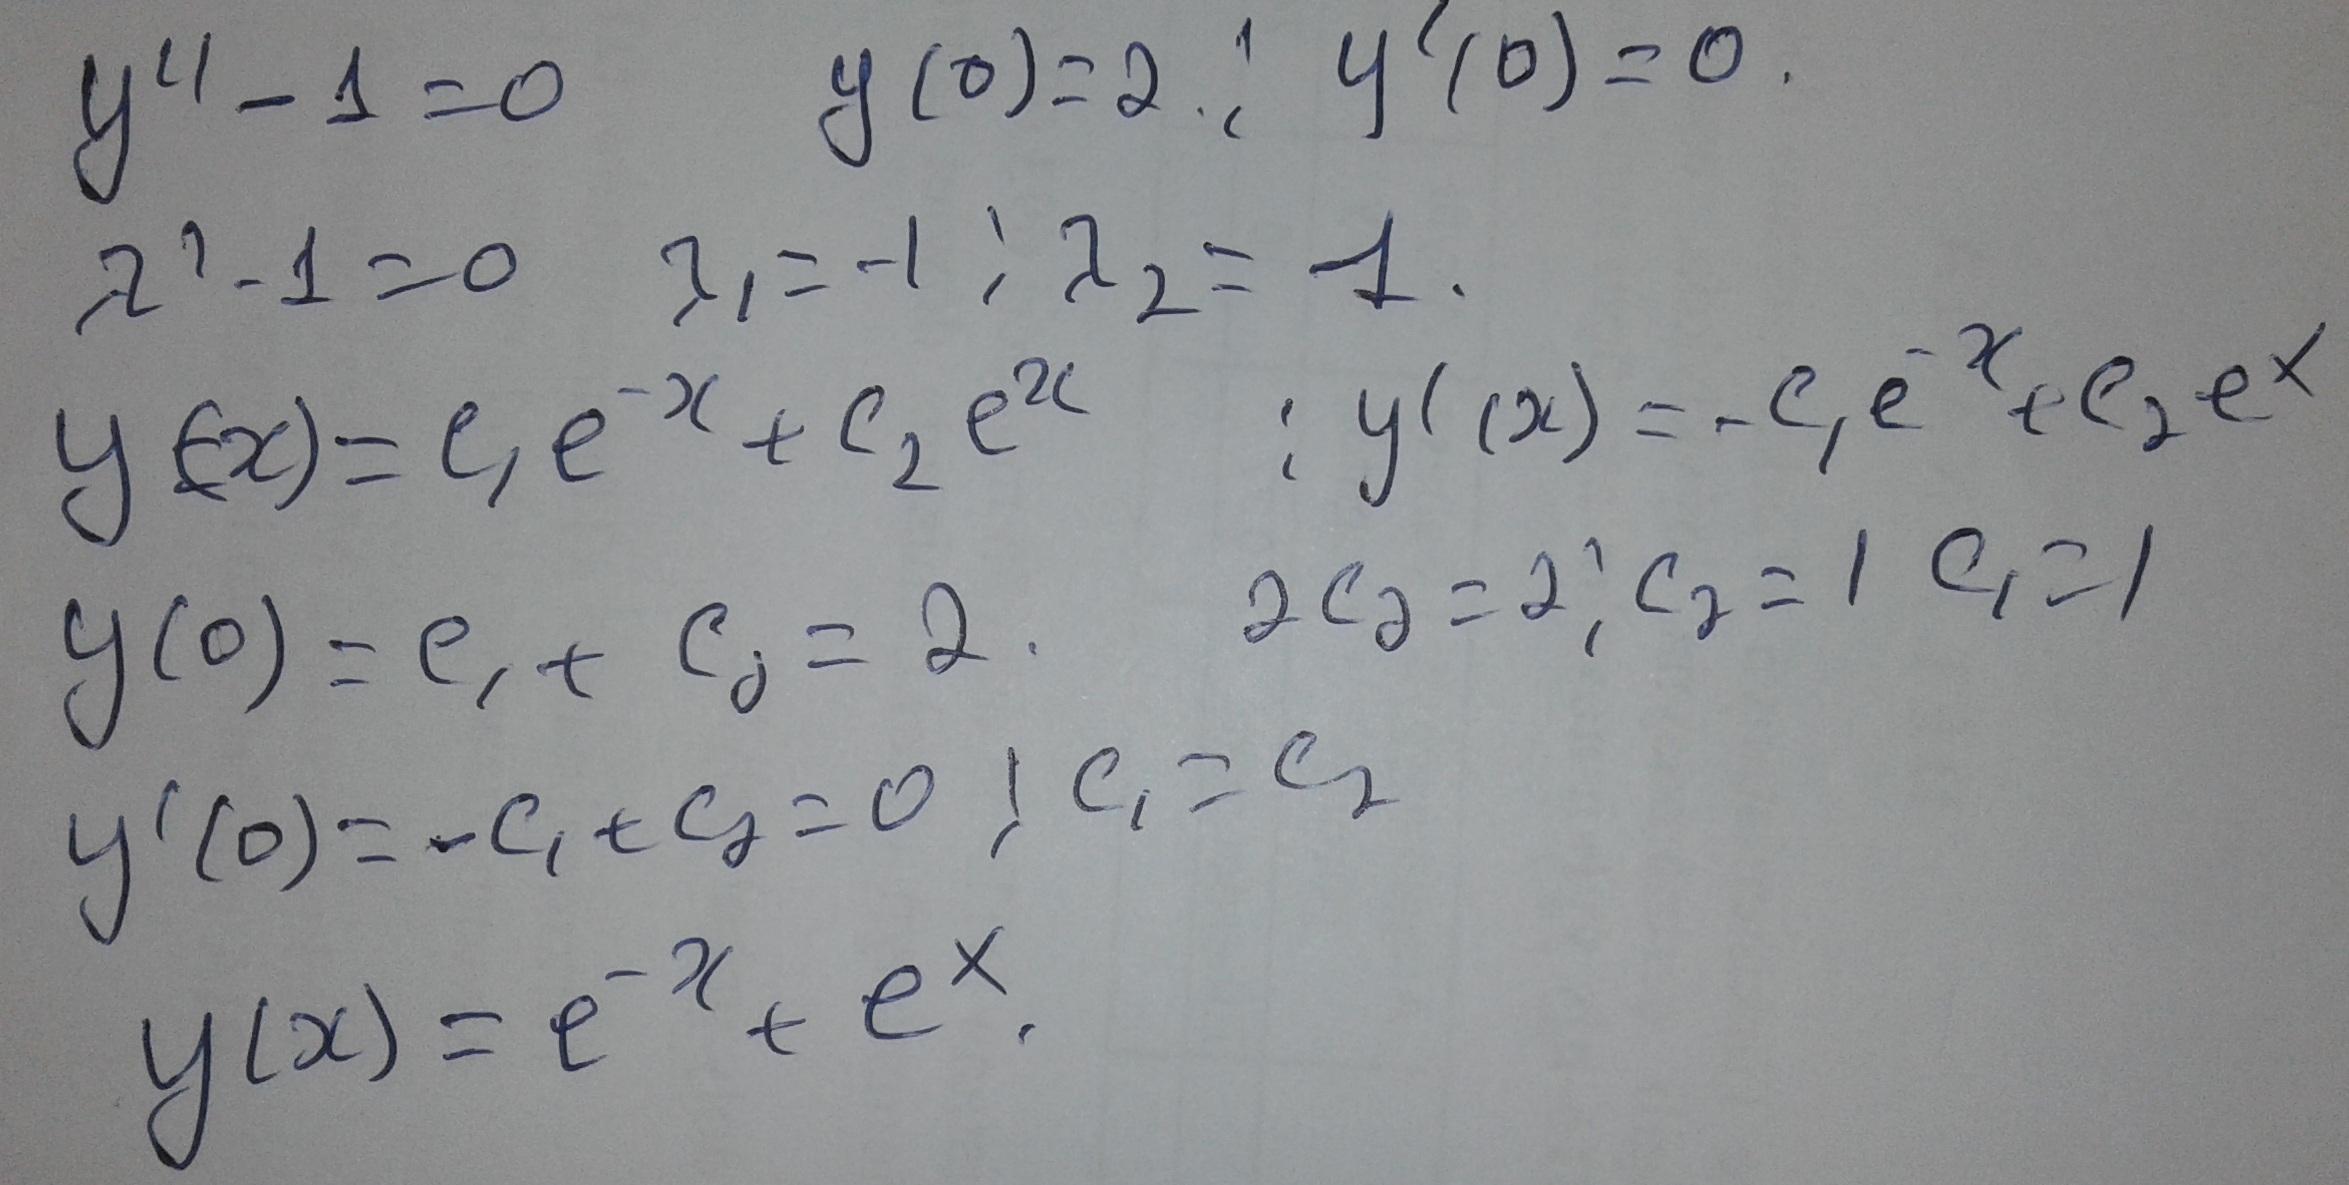 y'' - 1 = 0 y(0) = 2. ; y'(0) = 0.
λ² - 1 = 0 λ₁ = -1 ; λ₂ = -1.
y(x) = c₁e⁻ˣ + c₂eˣ ; y'(x) = -c₁e⁻ˣ + c₂eˣ
y(0) = c₁ + c₂ = 2. 2c₂ = 2 ; c₂ = 1 c₁ = 1
y'(0) = -c₁ + c₂ = 0 ; c₁ = c₂
y(x) = e⁻ˣ + eˣ.